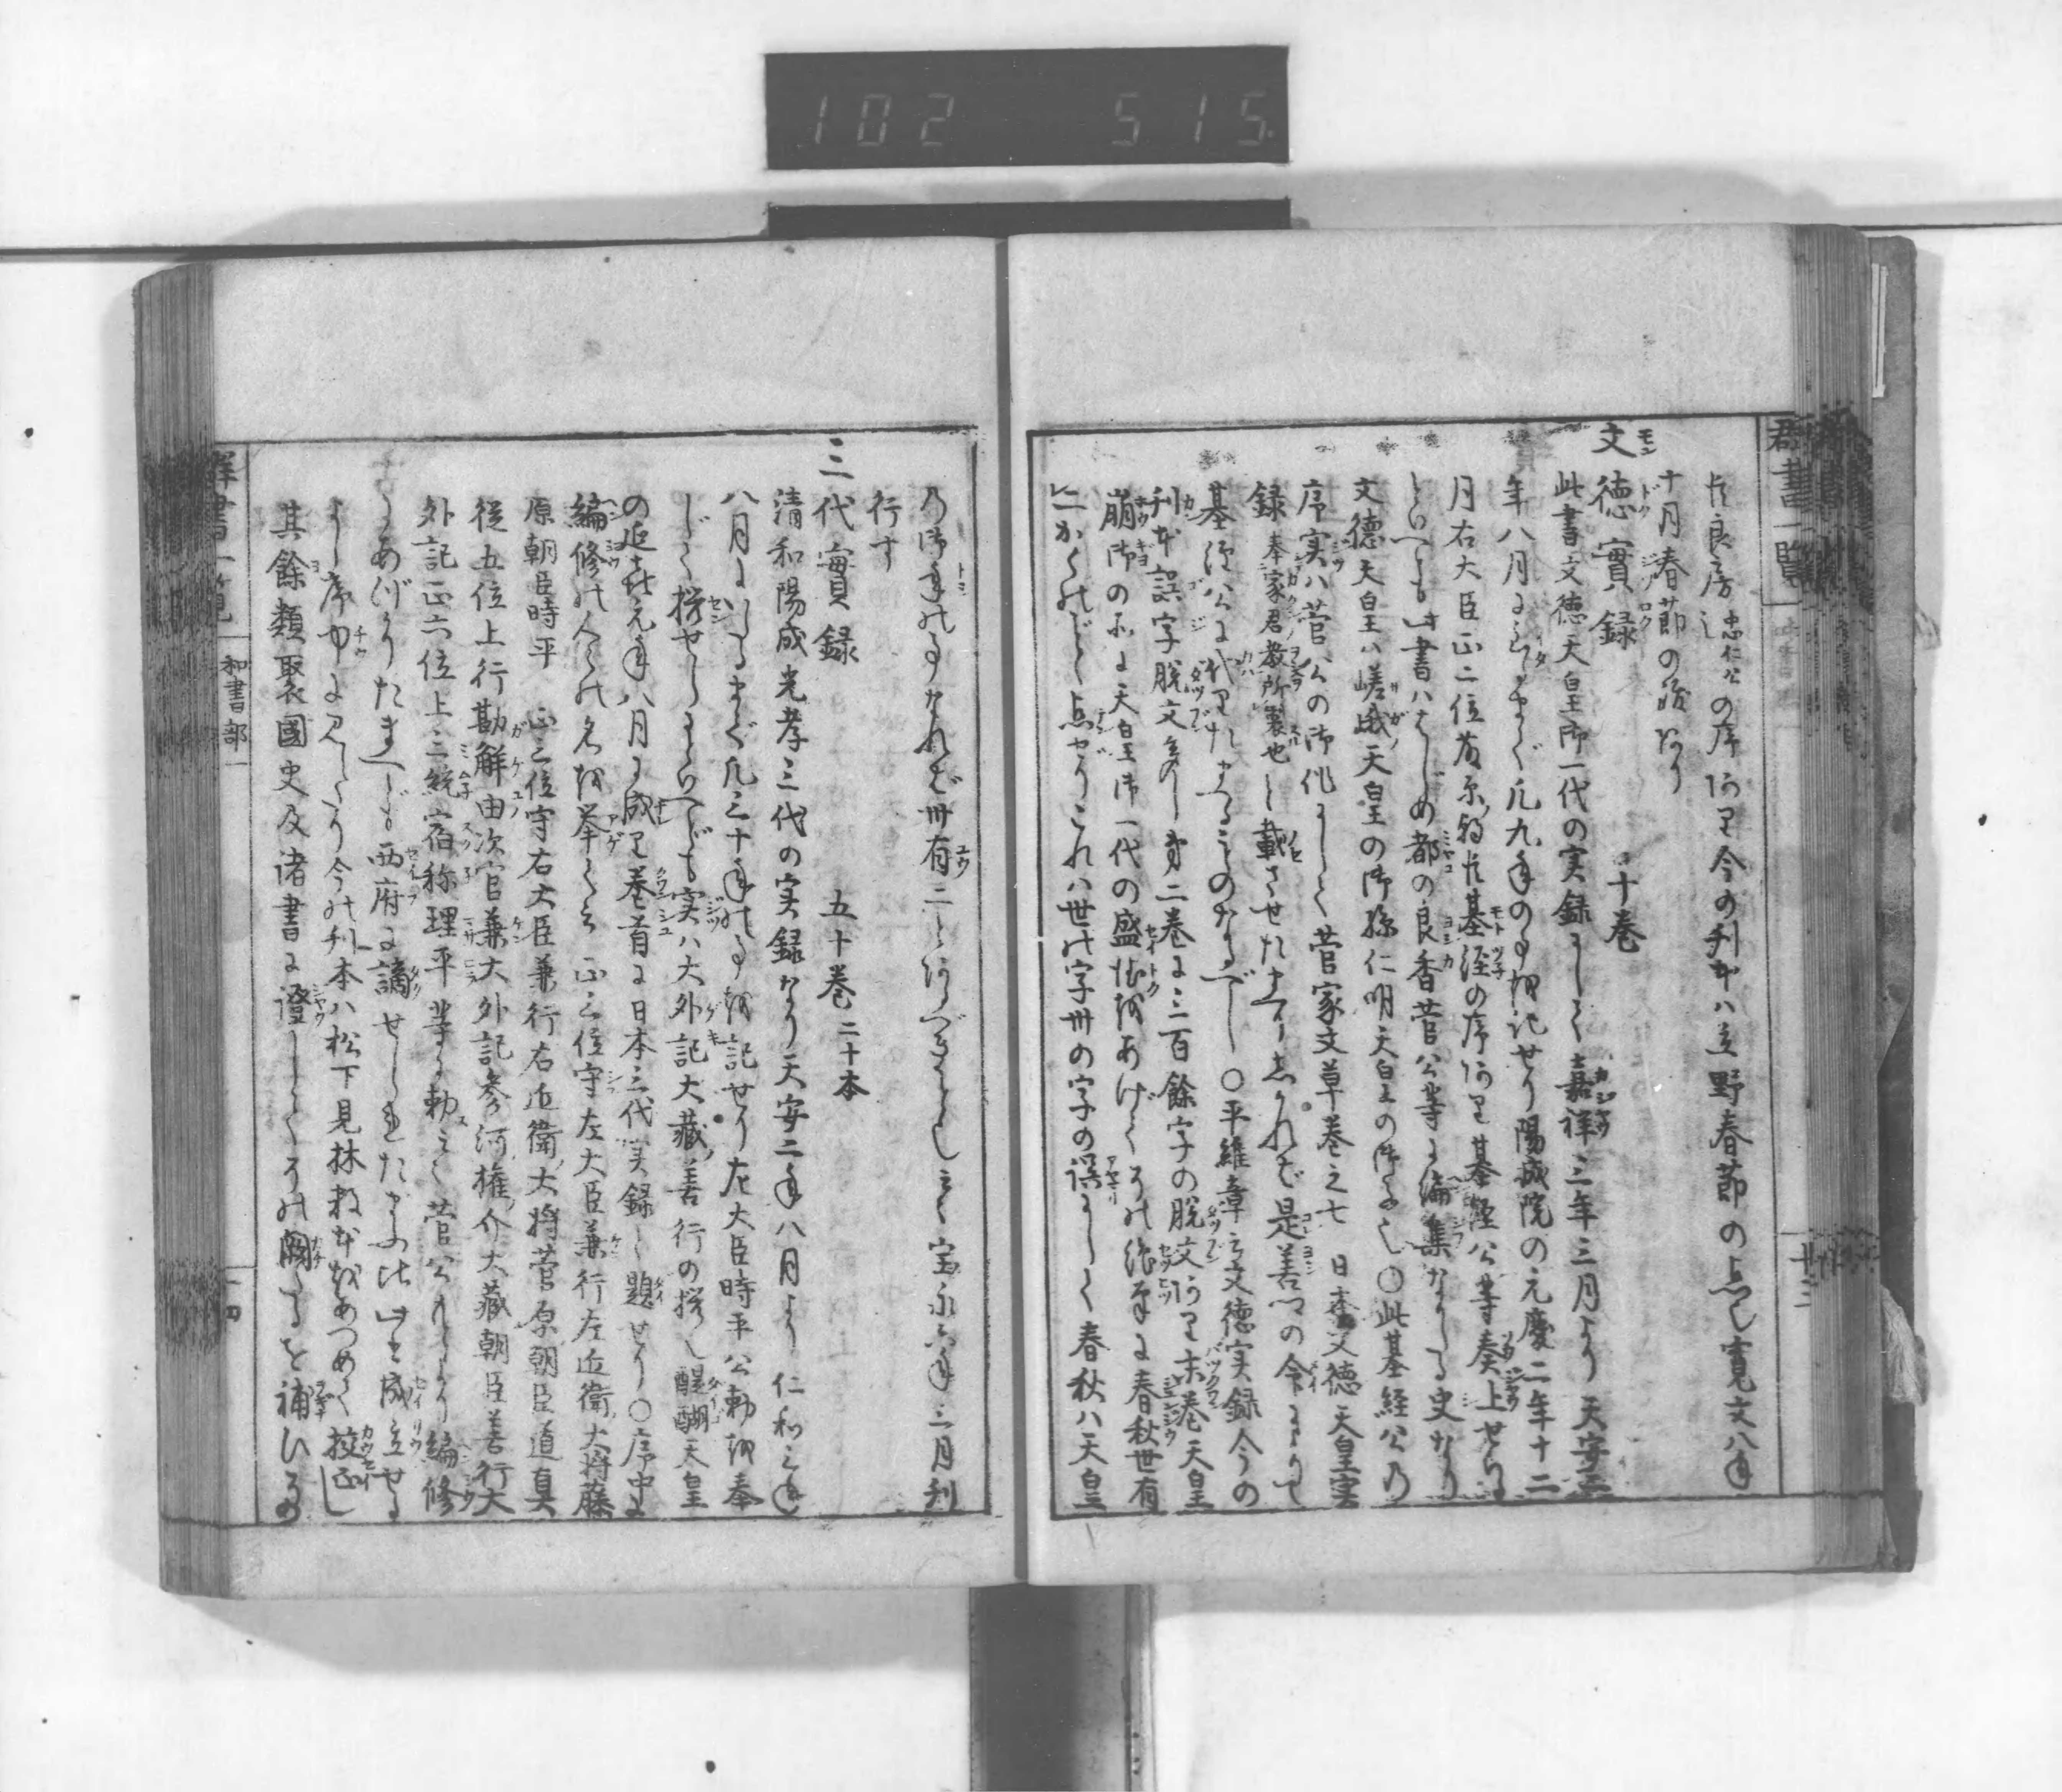 102 515
群書一覧
良房忠仁公の序あり今の刊本ハ立野春節の点也寛文八年
十月春節の跋あり
文徳實録 十巻
此書文徳天皇御一代の実録にして嘉祥三年三月より天安二
年八月にいたるまで凡九年の事を記せり陽成院の元慶二年十二
月右大臣正二位藤原朝臣基経の序あり基経公等奏上せらる
といへども此書ハはじめ都の良香菅公等の編集なりたる史なり
文徳天皇ハ嵯峨天皇の御孫仁明天皇の御子也○此基経公の
序実ハ菅公の御作にして菅家文草巻之七 日本文徳天皇実
録 奉家君教所製也 と載させたまへりしかれど是善の令によりて
基経公に代りたまへるものなるべし○平維章云文徳実録今の
刊本誤字脱文多し第二巻に三百餘字の脱文あり末巻天皇
崩御の所に天皇御一代の盛徳をあげてその後に春秋世有
二かくのごとく点せりこれハ世の字卅の字の誤にして春秋ハ天皇
の御年の事なれど卅有二とあるべきことし云〻宝永六年三月刊
行す
三代實録 五十巻 二十本
清和陽成光孝三代の実録なり天安二年八月より 仁和三年
八月にいたるまで凡三十年の事を記せり左大臣時平公勅を奉
じて撰せしといへども実ハ大外記大蔵善行の撰也醍醐天皇
の延喜元年八月に成り巻首に日本三代実録と題せり○序中に
編修の人々の名を挙て云 正三位守左大臣兼行左近衛大将藤
原朝臣時平 正三位守右大臣兼行右近衛大将菅原朝臣道真
従五位上行勘解由次官兼大外記参河権介大蔵朝臣善行大
外記正六位上三統宿祢理平等に勅して 菅公はじめより編修
にあづかりたまへども西府に謫せられたまふ此書成立せる
よし序中に見えたり今の刊本ハ松下見林数本をあつめて挍正し
其餘類聚國史及諸書に證してその闕たるを補ひその
和書部一